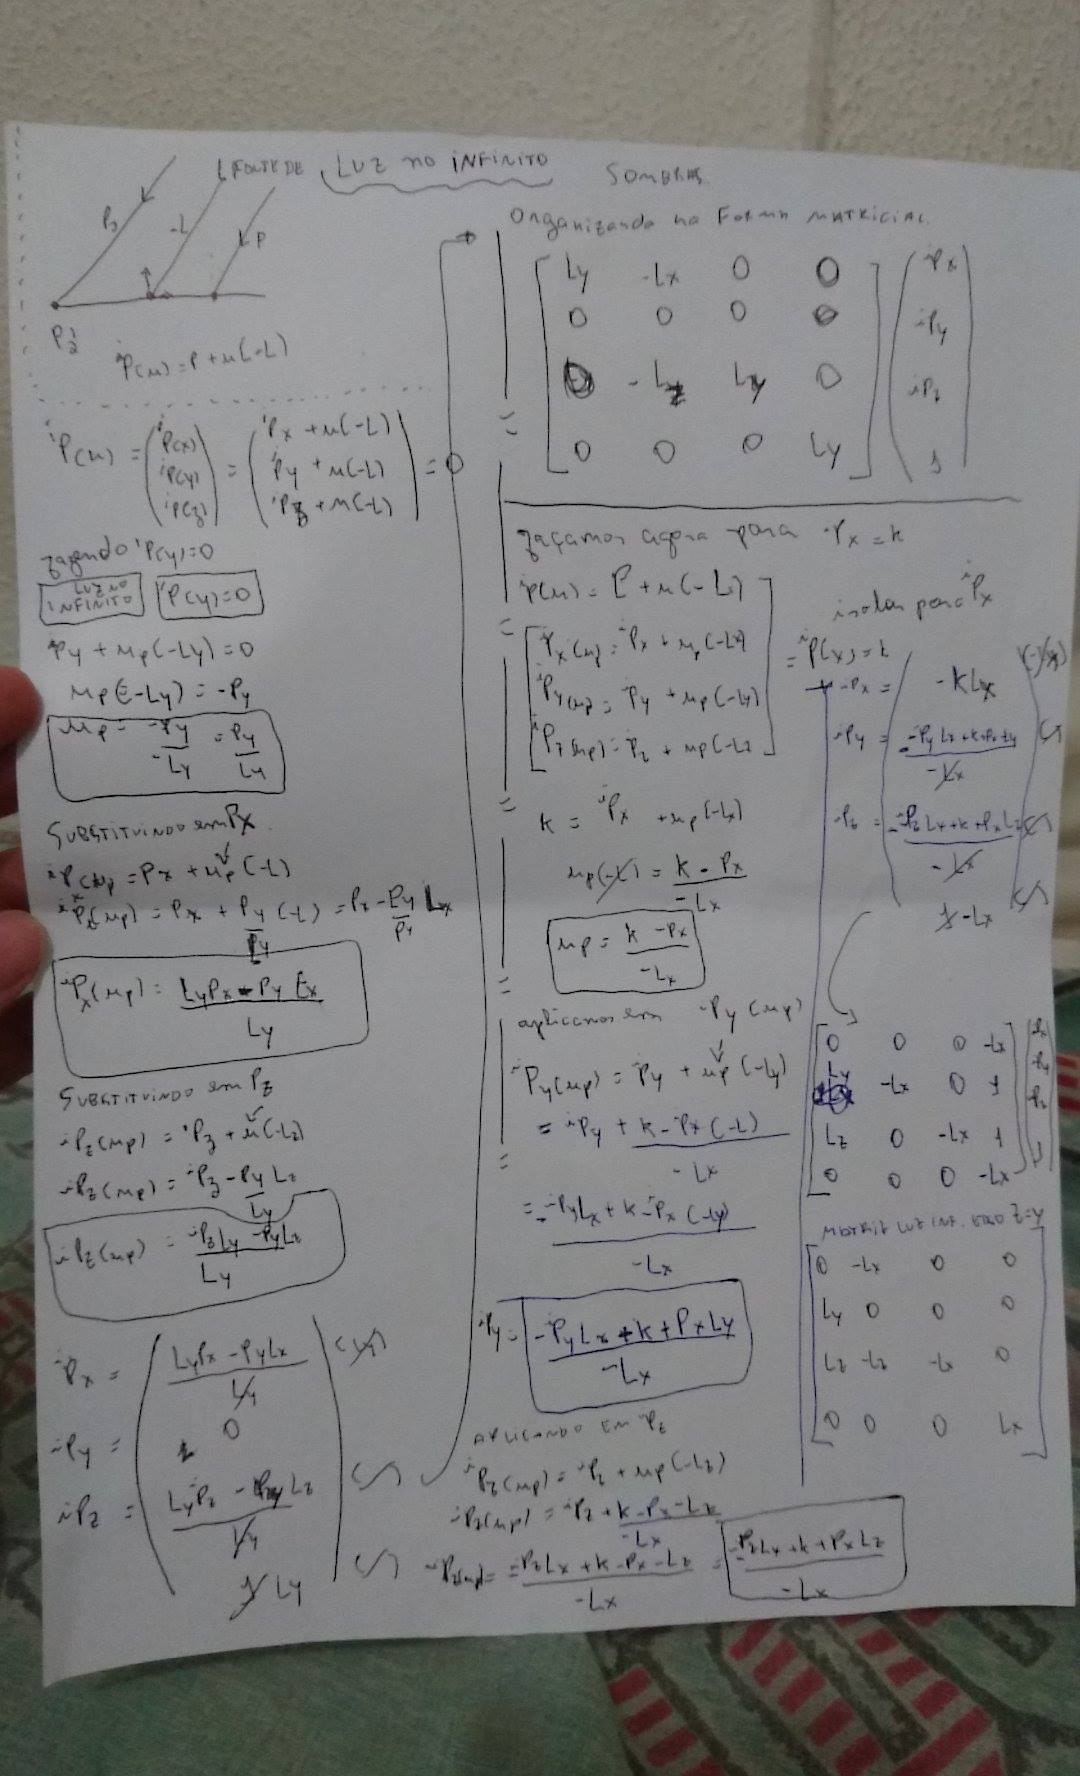 FONTE DE LUZ no INFINITO
SOMBRAS
-L
P
P(u) = P + u(-L)
P(u) = (P(x) P(y) P(z)) = (Px + u(-L) Py + u(-L) Pz + u(-L)) = 0
fazendo P(y)=0
LUZ NO INFINITO P(y)=0
Py + up(-Ly) = 0
up(-Ly) = -Py
up = -Py/-Ly = Py/Ly
SUBSTITUINDO em Px
= Px + up(-L)
(up) = Px + Py (-L) = Px - Py Lx
Px(up) = LyPx - Py Lx / Ly
SUBSTITUINDO em Pz
Pz(up) = Pz + u(-Lz)
Pz(up) = Pz - Py Lz / Ly
Pz(up) = PzLy - PyLz / Ly
Px = LyPx - PyLx / Ly
Py = 0
Pz = LyPz - Py Lz / Ly
1 Ly
Organizando na Forma MATRICIAL
Ly -Lx 0 0 Px
0 0 0 0 Py
0 -Lz Ly 0 Pz
0 0 0 Ly 1
façamos agora para Px = k
P(u) = P + u(-L)
Px(up) = Px + up(-Lx)
Py(up) = Py + up(-Ly)
Pz(up) = Pz + up(-Lz
k = Px + up(-Lx)
up(-L) = k - Px / -Lx
up = k - Px / -Lx
aplicamos em Py(up)
Py(up) = Py + up(-Ly)
= Py + k - Px(-L) / -Lx
= -PyLx + k - Px(-Ly) / -Lx
Py = -PyLx + k + PxLy / -Lx
APLICANDO EM Pz
Pz(up) = Pz + up(-Lz)
Pz(up) = Pz + k - Px - Lz / -Lx
Pz(up) = -PzLx + k - Px - Lz / -Lx = -PzLx + k + PxLz / -Lx
isolar para Px
= P(x) = k
Px = -kLx
Py = -PyLx + k + PxLy / -Lx
Pz = -PzLx + k + PxLz / -Lx
1 -Lx
0 0 0 -Lx Px
Ly -Lx 0 1 Py
Lz 0 -Lx 1 Pz
0 0 0 -Lx 1
MATRIZ LUZ INF. Z=Y
0 -Lx 0 0
Ly 0 0 0
Lz -Lz -Lx 0
0 0 0 Lx